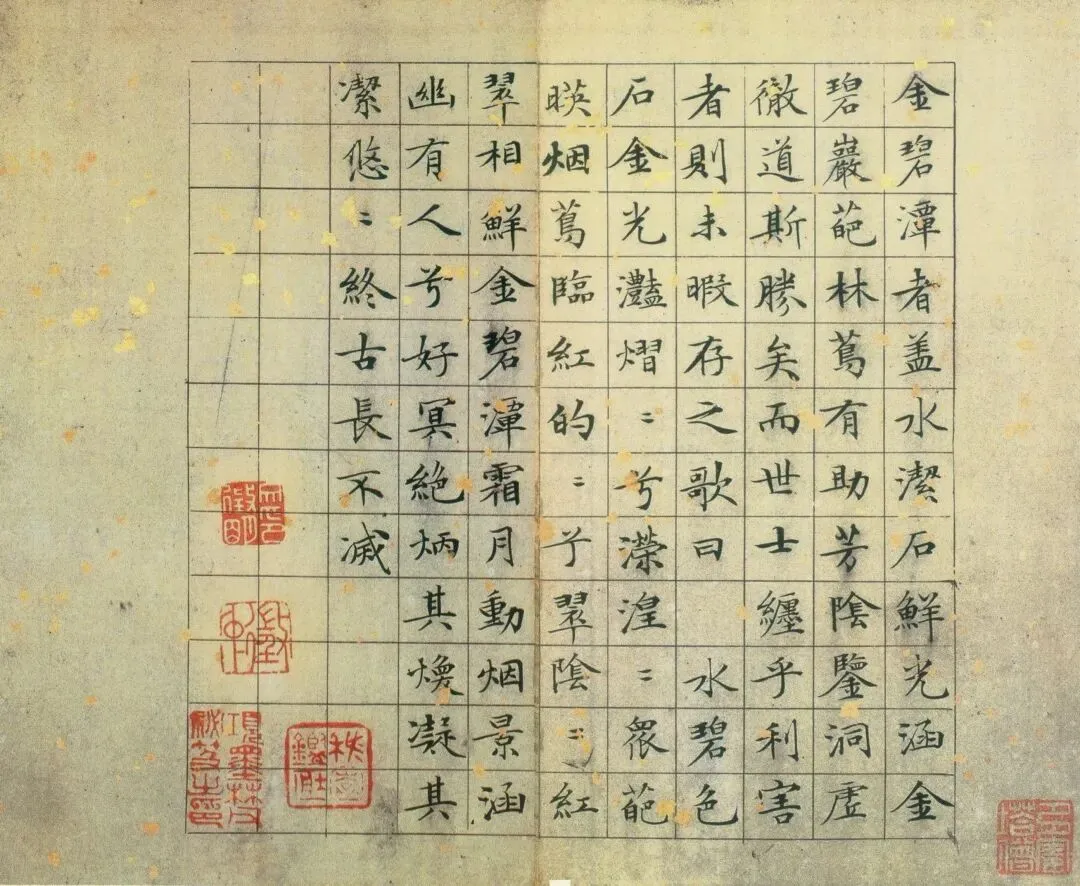 金碧潭者盖水潔石鮮光涵金
碧巖葩林蔦有助芳陰鑒洞虛
徹道斯勝矣而世士纏乎利害
者則未暇存之歌曰 水碧色
石金光灩熠〻兮濴湟〻衆葩
暎烟蔦臨紅的〻兮翠陰〻紅
翠相鮮金碧潭霜月動烟景涵
幽有人兮好冥絕炳其煥凝其
潔悠〻終古長不滅
項墨林父
秘笈之印